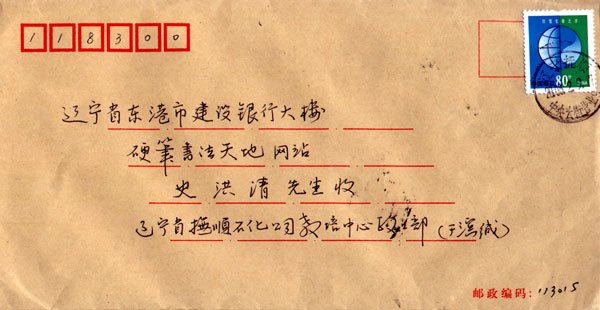 118300
80分
辽宁省东港市建设银行大楼
硬筆書法天地网站
史洪清先生收
辽宁省撫順石化公司教培中心
邮政编码：113015